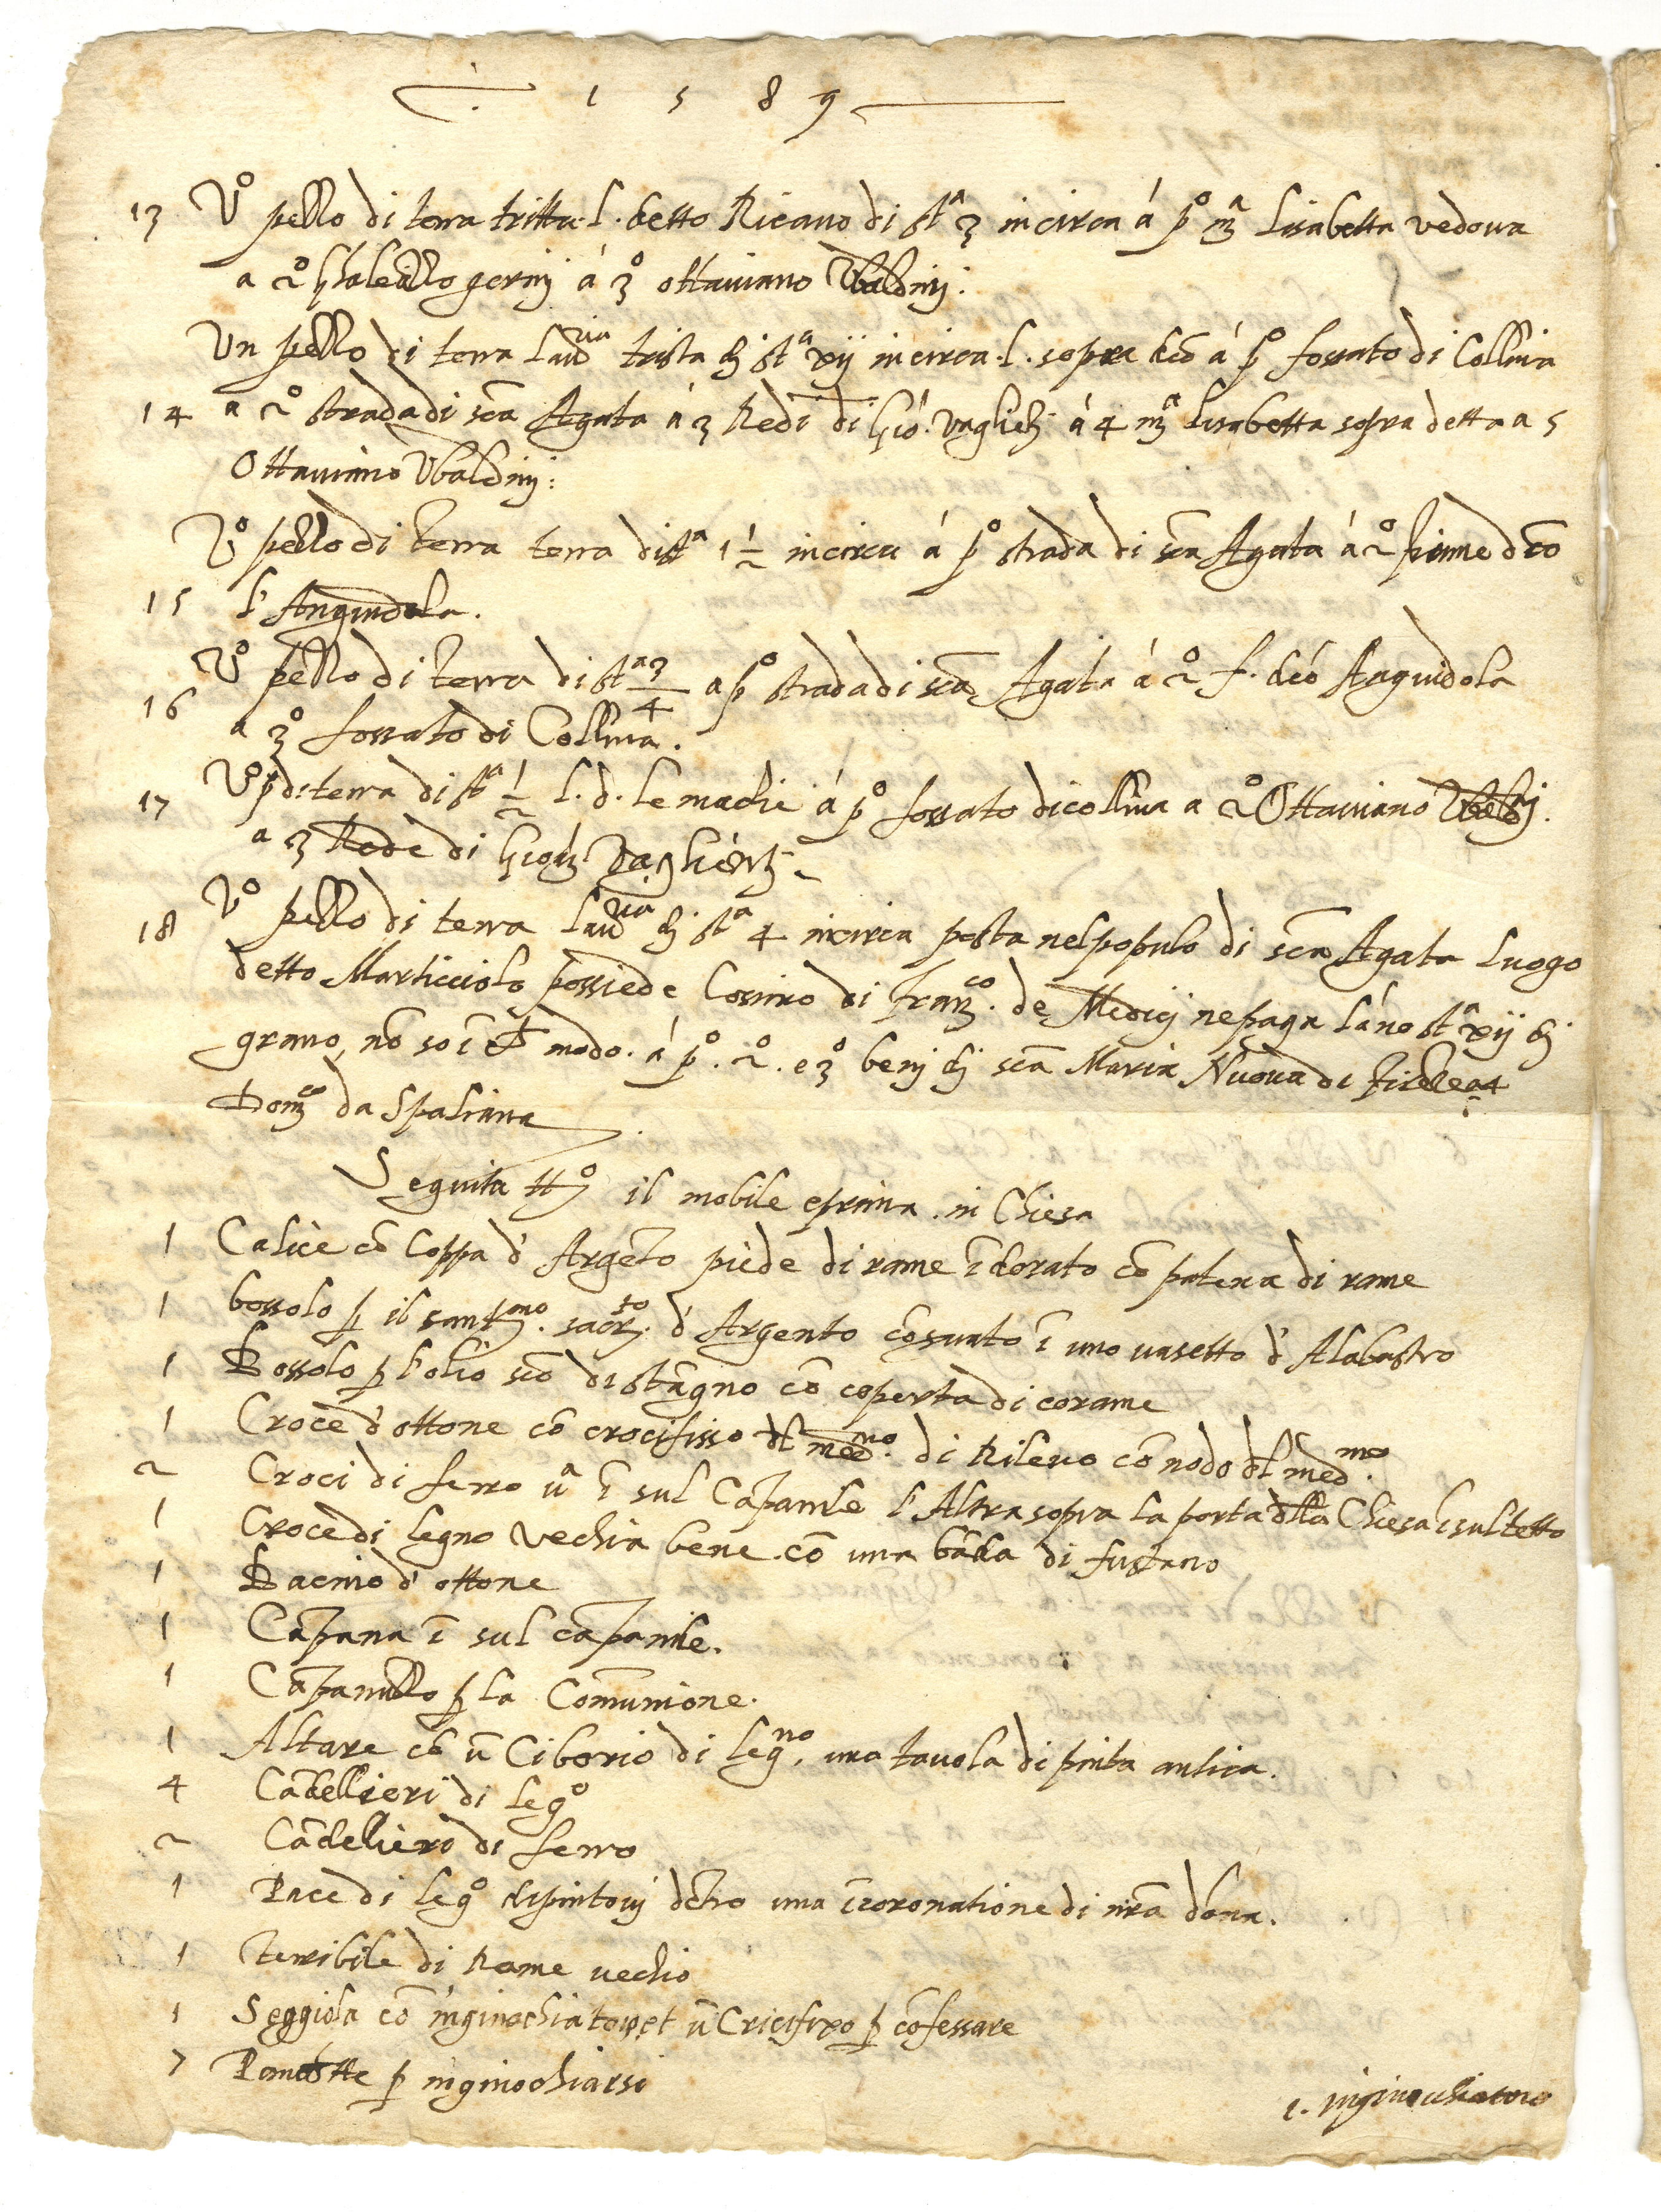 1589
13 Vº pezzo di terra trista. l. detto Ricavo di stª 3 incirca á pº mª Lisabetta vedova
a 2º Ghaleazzo gerinj á 3º ottaviano Vbaldinj.
Vn pezzo di terra lauᵒʳⁱᵃ trista dj stª xij incirca. l. sopra dc̃o á pº fossato di Collina
14 a 2º strada di sc̃a Agata á 3 Redi di Gió. Vaglienti á 4 mª Lisabetta sopra detta a 5
Ottaviano Vbaldinj:
Vº pezzo di terra terra di stª 1 1/2 incirca á pº strada di sc̃a Agata á 2º fiume dc̃o
15 l'Anguidola.
16 Vº pezzo di terra di stª 3/4 a pº strada di sc̃a Agata á 2º f. dc̃o Anguidola
a 3º fossato di Collina.
17 Vº p di terra di stª 1/2 l. d. le machie á pº fossato di collina a 2º Ottaviano Vbaldj.
a 3 Rede di
18 Vº pezzo di terra lauᵒʳⁱᵃ dj stª 4 incirca posta nel popolo di sc̃a Agata luogo
detto Marticciolo possiede Cosimo di Franᶜᵒ. de Medicj ne paga l'ãno stª xij dj
grano, nõ so ĩ modo. á pº. 2º. e 3º benj dj sc̃a Maria Nuova di Firẽze a 4
Domᶜᵒ da Spaliana
Seguita ttº il mobile e prima. in Chiesa
1 Calice cõ Coppa d'Argẽto piede di rame ĩdorato cõ patena di rame
1 bossolo p il santᵐᵒ. sacrᵗᵒ. d'Argento cõsvato ĩ uno vasetto d'Alabastro
1 Bossolo p l'olio sc̃o di stãgno cõ coperta di corame
1 Croce d'ottone cõ crocifisso dl medᵐᵒ. di Rilevo cõ nodo dl medᵐᵒ.
2 Croci di ferro ũª ĩ sul Cãpanile l'Altra sopra la porta dlla Chiesa ĩ sul tetto
1 Croce di legno vechia bene. cõ una bãda di fustano
1 Bacino d'ottone
1 Cãpana ĩ sul cãpanile.
1 Cãpanello p la Comunione.
1 Altare cõ ũ Ciborio di legⁿᵒ, una tavola dipinta antica.
4 Cãdellieri di legº
2 Cãdelieri di ferro
1 Pace di legº dipintovj dẽtro una ĩcoronatione di nr̃a dõna.
1 Terribile di Rame vechio
1 Seggiola cõ inginochiatoio et ũ Cricifixo p cõfessare
7 Panchette p inginochiarsi
1. inginochiatoio